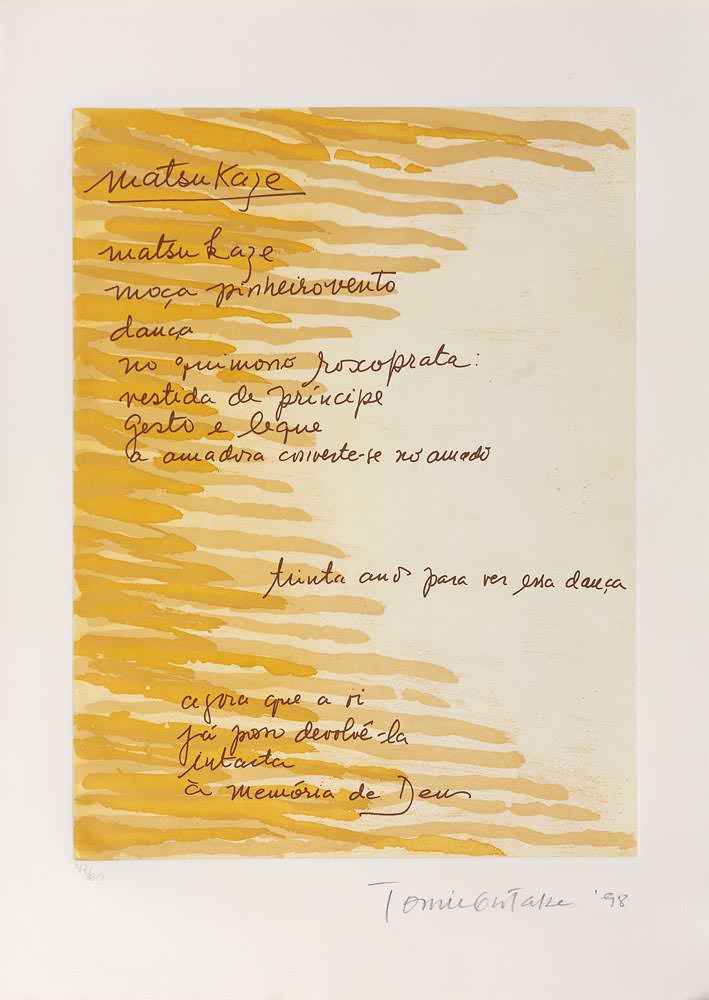 matsukaze
matsukaze
moça pinheirovento
dança
no quimono roxoprata:
vestida de príncipe
gesto e leque
a amadora converte-se no amado
trinta anos para ver essa dança
agora que a vi
já posso devolvê-la
intacta
à memória de Deus
Tomie Ohtake '98